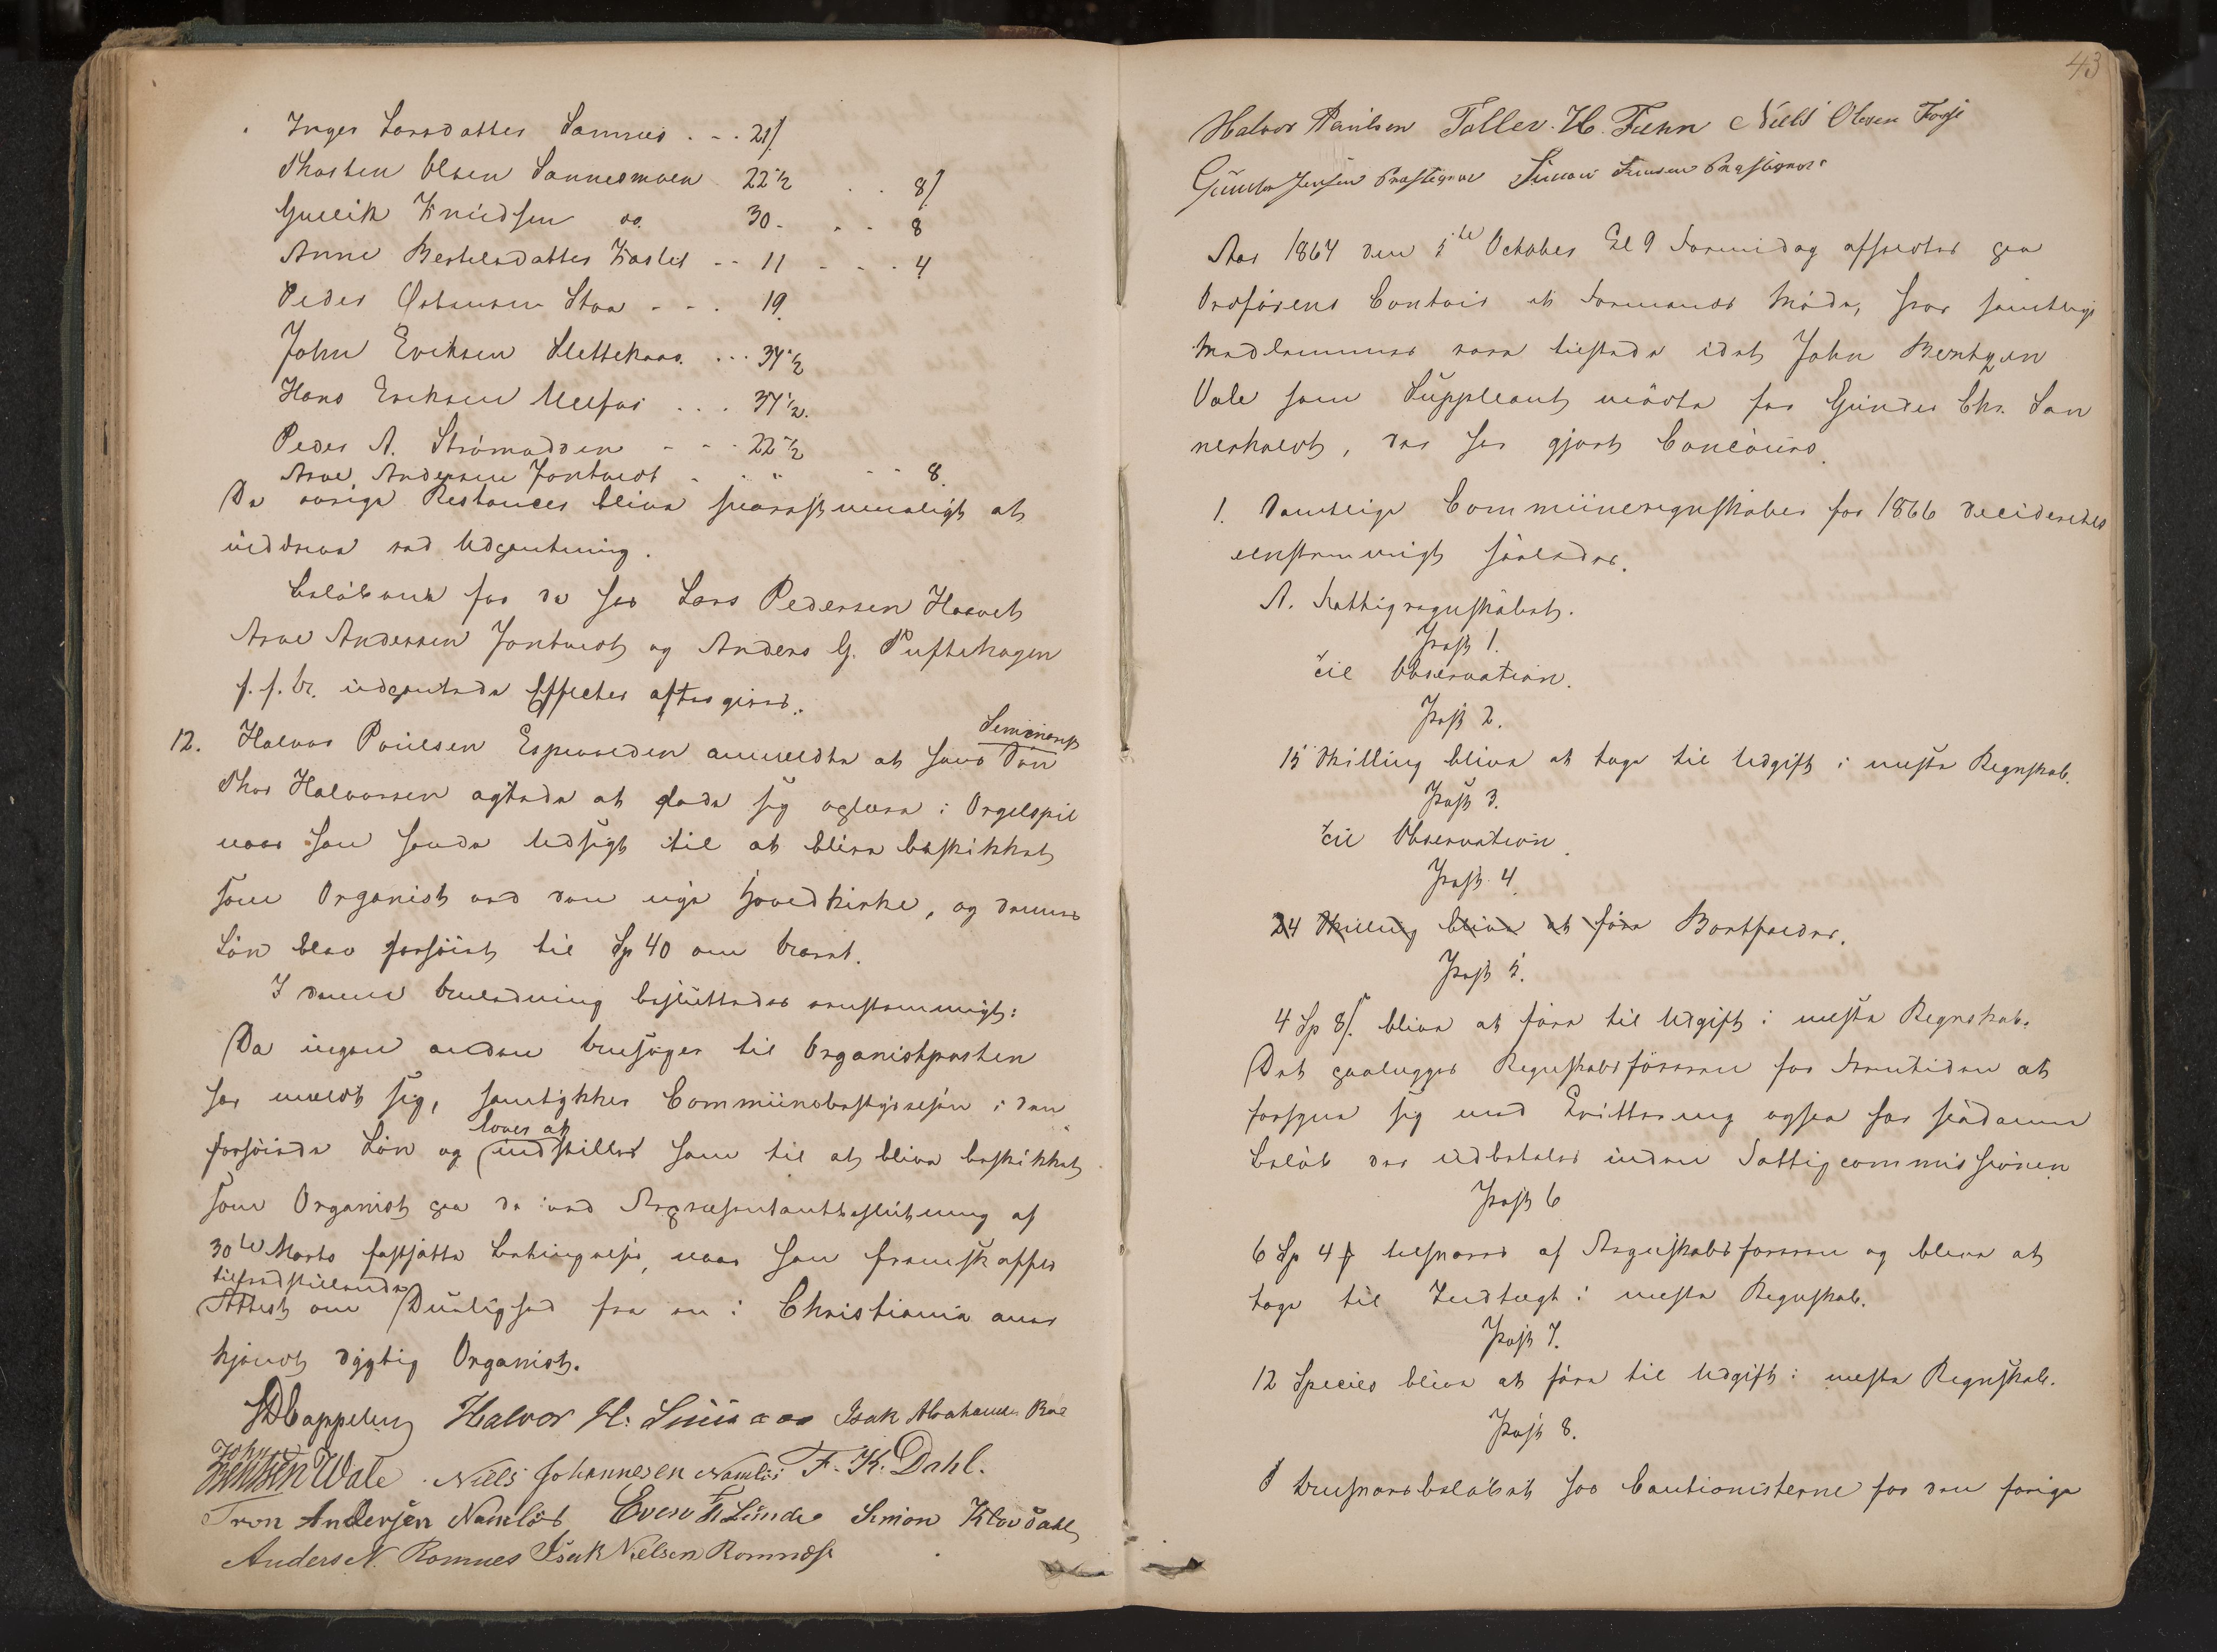 Inger Larsdatter Sannes . - . 21/.
Thorsten Olsen Sannesmoen 22 1/2 . . 8/.
Gullik Knudsen do. 30 - . - . 8
Anne Bertelsdatter - - 11 - . - . 4
Peder Stoa - - . 19.
John Eriksen Slettekaas . . . 37 1/2
Hans Eriksen Ulefos . . . 37 1/2.
Peder A. Strömodden - - - 22 1/2
Aroe Andersen Jontvedt - - - 8.
De övrige Restancer blive at
inddrive ved Udpantning.
Belöbene for de hos Lars Pedersen Haavet
Aroe Andersen Jontvedt og Anders G. Puftehagen
udpantede Effecter eftergives.
12. Halvor Paulsen anmeldte at hans Sön Seminarist
Thor Halvorsen agtede at lade sig oplære i Orgelspil
naar han havde Udsigt til at blive beskikket
som Organist ved den nye Hovedkirke, og dennes
Lön blev forhöiet til Sp 40 om Aaret.
I denne Anledning besluttedes eenstemmigt:
Da ingen anden Ansöger til Organistposten
har meldt sig, samtykker Communebestyrelsen i den
forhöiede Lön og lover at indstille ham til at blive beskikket
som Organist paa de ved Repræsentantbeslutning af
30te Marts fastsatte Betingelser, naar han fremskaffer
tilfredsstillende
Attest om Duelighed fra en i Christiania aner
kjendt dygtig Organist.
Cappelen Halvor H. Isak Abrahamsen
John Bentsen Wale. Niels Johannesen Namlös F. K. Dahl.
Tron Andersen Namlös Even Lunde Simon Klovdahl
Anders N. Romnes Isak Nielsen Romnæs
43
Halvor Paulsen Tollev. H. Fahn Niels Olsen
Gunder Jensen Præstegard Simon Jensen Præstegard
Aar 1867 den 5te October Kl 9 Formiddag afholdtes paa
Ordförens Contoir et Formands Möde, hvor samtlige
Medlemmer vare tilstede idet John Bentzen
Vale som Suppleant mödte for Gunder Chr. San
neskaldt, der har gjort Concours.
1. Samtlige Communeregnskaber for 1866 decideredes
eenstemmigt saaledes.
A. Fattigregnskabet.
Post 1.
til Observation.
Post 2.
15 Skilling blive at tage til Udgift i næste Regnskab.
Post 3.
til Observation.
Post 4.
24 Skilling blive at före Bortfalder.
Post 5.
4 Sp 8/. blive at före til Udgift i næste Regnskab.
Det paalægges Regnskabsföreren for Fremtiden at
forsyne sig med Qvittering ogsaa for saadanne
Belöb der udbetales inden Fattigcommissionen
Post 6
6 Sp 4 tilsvares af Regnskabsföreren og blive at
tage til Indtægt i næste Regnskab.
Post 7.
12 Species blive at före til Udgift i næste Regnskab.
Post 8.
Ansvarsbelöbet hos Cautionisterne for den forige